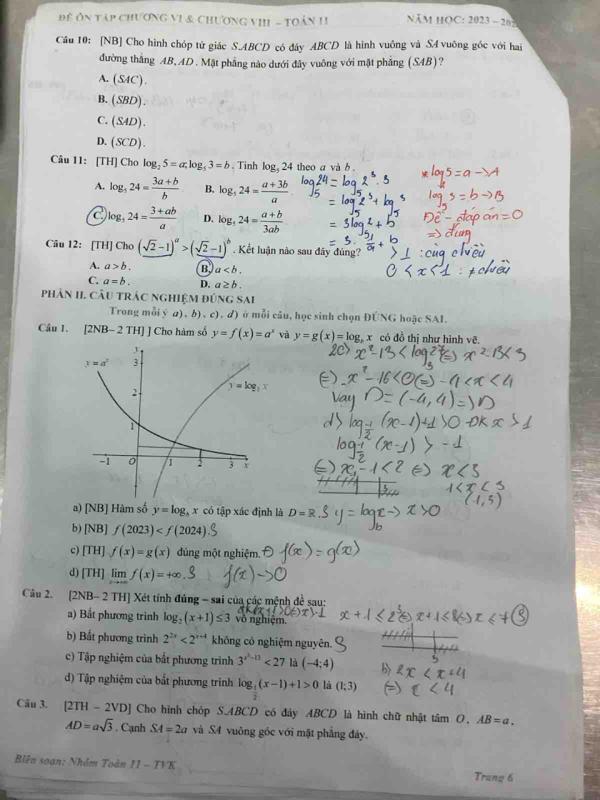 ĐỀ ÔN TẬP CHƯƠNG VI & CHƯƠNG VIII – TOÁN 11
NĂM HỌC: 2023 – 202
Câu 10: [NB] Cho hình chóp tứ giác S.ABCD có đáy ABCD là hình vuông và SA vuông góc với hai
đường thẳng AB, AD. Mặt phẳng nào dưới đây vuông với mặt phẳng (SAB)?
A. (SAC).
B. (SBD).
C. (SAD).
D. (SCD).
Câu 11: [TH] Cho log₂ 5 = a; log₅ 3 = b. Tính log₅ 24 theo a và b.
A. log₅ 24 = (3a+b)/b
B. log₅ 24 = (a+3b)/a
C. log₅ 24 = (3+ab)/a
D. log₅ 24 = (a+b)/(3ab)
log₅ 24 = log₅ 2³.3
= log₅ 2³ + log₅ 3
= 3log₅ 2 + b
= 3. 1/a + b
* log 5 = a -> A
log₅ 3 = b -> B
Đề - đáp án = 0
=> đúng
Câu 12: [TH] Cho (√2−1)ᵃ > (√2−1)ᵇ. Kết luận nào sau đây đúng?
A. a > b.
B. a < b.
C. a = b.
D. a ≥ b.
> 1 : cùng chiều
0 < x < 1 : ≠ chiều
PHẦN II. CÂU TRẮC NGHIỆM ĐÚNG SAI
Trong mỗi ý a), b), c), d) ở mỗi câu, học sinh chọn ĐÚNG hoặc SAI.
Câu 1. [2NB– 2 TH] ] Cho hàm số y = f(x) = aˣ và y = g(x) = log_b x có đồ thị như hình vẽ.
y = aˣ
y
3
2
1
y = log_b x
−1 O 1 2 3 x
2c) x² - 13 < log₃ 27 (=) x² - 13 < 3
(=) x² - 16 < 0 (=) -4 < x < 4
Vậy D = (-4, 4) => D
d) log_1/2 (x-1) + 1 > 0 ĐK x > 1
log_1/2 (x-1) > -1
(=) x - 1 < 2 (=) x < 3
1 < x < 3
(1, 3)
a) [NB] Hàm số y = log_b x có tập xác định là D = ℝ. S y = log_b x -> x > 0
b) [NB] f(2023) < f(2024). S
c) [TH] f(x) = g(x) đúng một nghiệm. Đ f(x) = g(x)
d) [TH] lim f(x) = +∞. S f(x) -> 0
Câu 2. [2NB– 2 TH] Xét tính đúng – sai của các mệnh đề sau:
a) Bất phương trình log₂(x+1) ≤ 3 vô nghiệm.
x + 1 ≤ 2³ (=) x + 1 ≤ 8 (=) x ≤ 7 (S)
b) Bất phương trình 2²ˣ < 2ˣ⁺⁴ không có nghiệm nguyên. S
c) Tập nghiệm của bất phương trình 3^(x²−13) < 27 là (−4;4)
b) 2x < x + 4
(=) x < 4
d) Tập nghiệm của bất phương trình log_1/2 (x−1) + 1 > 0 là (1;3)
Câu 3. [2TH – 2VD] Cho hình chóp S.ABCD có đáy ABCD là hình chữ nhật tâm O, AB = a,
AD = a√3. Cạnh SA = 2a và SA vuông góc với mặt phẳng đáy.
Biên soạn: Nhóm Toán 11 – TVK
Trang 6